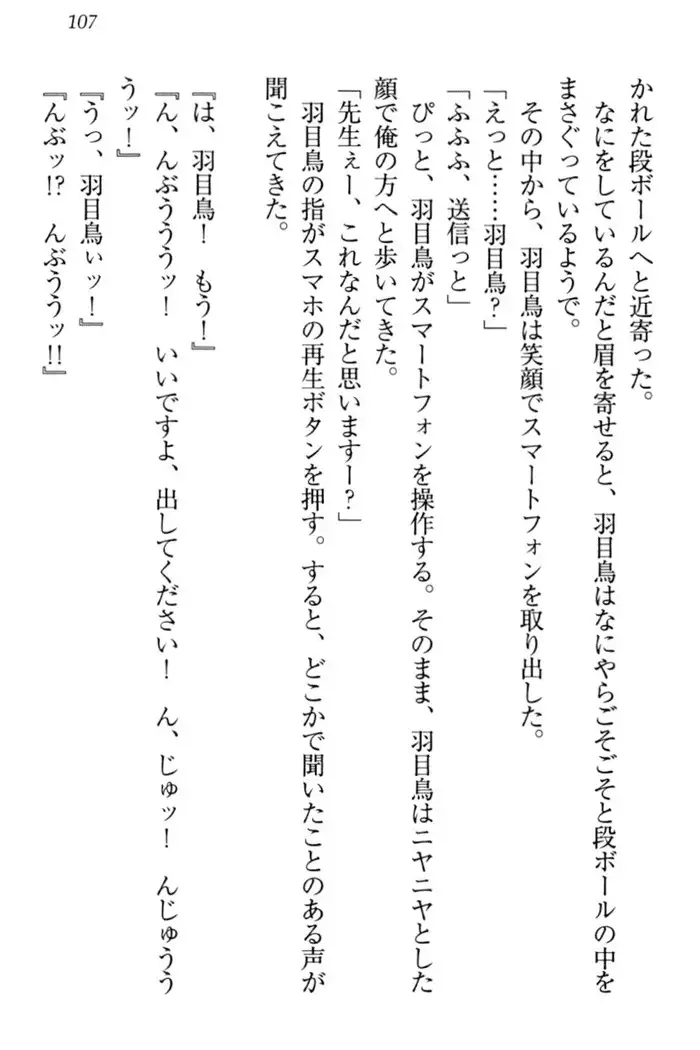 107
かれた段ボールへと近寄った。
なにをしているんだと眉を寄せると、羽目鳥はなにやらごそごそと段ボールの中を
まさぐっているようで。
その中から、羽目鳥は笑顔でスマートフォンを取り出した。
「えっと……羽目鳥？」
「ふふふ、送信っと」
ぴっと、羽目鳥がスマートフォンを操作する。そのまま、羽目鳥はニヤニヤとした
顔で俺の方へと歩いてきた。
「先生ぇー、これなんだと思いますー？」
羽目鳥の指がスマホの再生ボタンを押す。すると、どこかで聞いたことのある声が
聞こえてきた。
『は、羽目鳥！　もう！』
『ん、んぶうううッ！　いいですよ、出してください！　ん、じゅッ！　んじゅうう
うッ！』
『うっ、羽目鳥ぃッ！』
『んぶッ!?　んぶううッ!!』